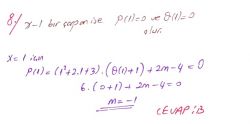 8) x-1 bir çarpan ise P(1)=0 ve Q(1)=0
olur.
x=1 için
P(1)=(1²+2.1+3).(Q(1)+1)+2m-4=0
6.(0+1)+2m-4=0
m=-1
CEVAP:B